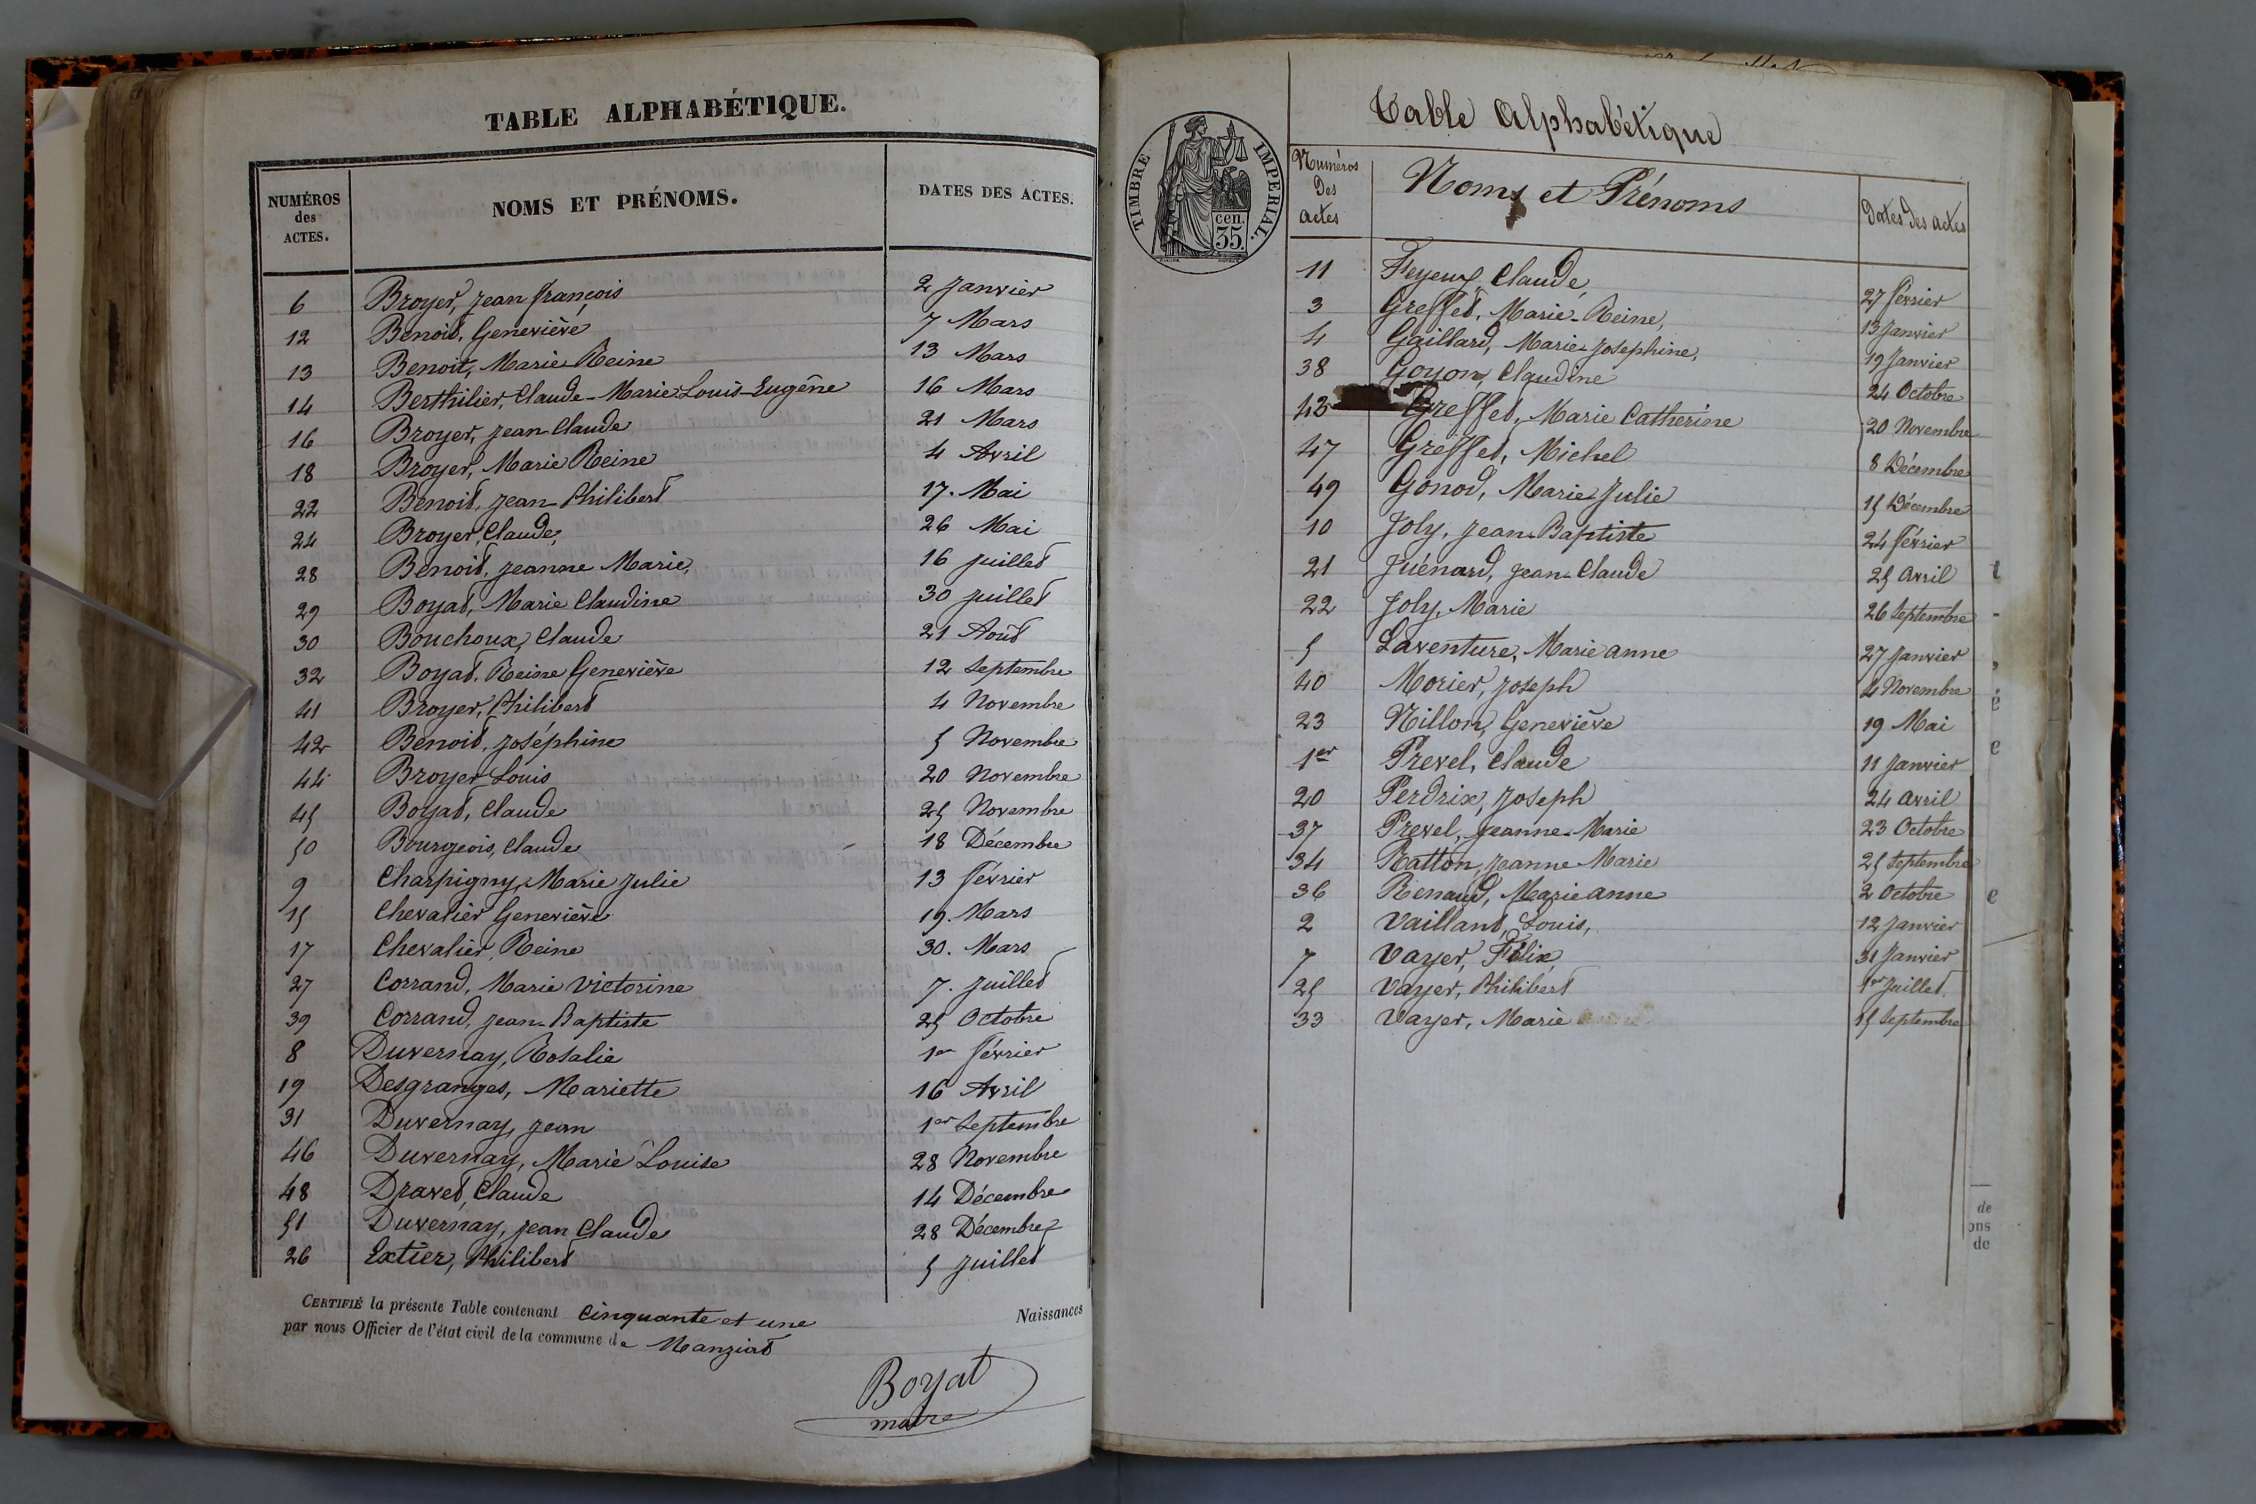 TABLE ALPHABÉTIQUE.
NUMÉROS des ACTES. NOMS ET PRÉNOMS. DATES DES ACTES.
6 Broyer, Jean François 2 Janvier
12 Benoit, Geneviève 7 Mars
13 Benoit, Marie Reine 13 Mars
14 Berthilier, Claude-Marie-Louis-Eugêne 16 Mars
16 Broyer, Jean Claude 21 Mars
18 Broyer, Marie Reine 4 Avril
22 Benoit, Jean-Philibert 17. Mai
24 Broyer, Claude, 26 Mai
28 Benoit, Jeanne Marie, 16 Juillet
29 Boyat, Marie Claudine 30 Juillet
30 Bouchoux, Claude 21 Août
32 Boyat, Reine Geneviève 12 Septembre
41 Broyer, Philibert 4 Novembre
42 Benoit, Joséphine 5 Novembre
44 Broyer Louis 20 Novembre
45 Boyat, Claude 25 Novembre
50 Bourgeois, Claude 18 Décembre
9 Charpigny, Marie Julie 13 Février
15 Chevalier Geneviève 19. Mars
17 Chevalier, Reine 30. Mars
27 Corrand, Marie Victorine 7. Juillet
39 Corrand, Jean-Baptiste 25 Octobre
8 Duvernay, Rosalie 1er Février
19 Desgranges, Mariette 16 Avril
31 Duvernay, Jean 1er Septembre
46 Duvernay, Marie Louise 28 Novembre
48 Dravet, Claude 14 Décembre
51 Duvernay, Jean Claude 28 Décembre
26 Extier, Philibert 5 Juillet
CERTIFIÉ la présente Table contenant Cinquante et une Naissances
par nous Officier de l'état civil de la commune de Manziat
Boyat
maire
TIMBRE IMPERIAL.
35 cen.
Table Alphabétique
Numéros Des actes Noms et Prénoms Dates des actes
11 Feyeux, Claude, 27 Février
3 Greffet, Marie-Reine, 13 Janvier
4 Gaillard, Marie-Josephine, 19 Janvier
38 Goyon, Claudine 24 Octobre
43 Greffet, Marie Catherine 20 Novembre
47 Greffet, Michel 8 Décembre
49 Gonod, Marie Julie 15 Décembre
10 Joly, Jean-Baptiste 24 Février
21 Juénard, Jean-Claude 25 Avril
22 Joly, Marie 26 Septembre
5 Laventure, Marie anne 27 Janvier
40 Morier, Joseph 4 Novembre
23 Nillon, Geneviève 19 Mai
1er Prevel, Claude 11 Janvier
20 Perdrix, Joseph 24 Avril
37 Prevel, Jeanne-Marie 23 Octobre
34 Ratton, Jeanne Marie 25 Septembre
36 Renaud, Marie anne 2 Octobre
2 Vaillant, Louis, 12 Janvier
7 Vayer, Félix 31 Janvier
25 Vayer, Philibert 1er Juillet
33 Vayer, Marie 15 Septembre
de
ons
de